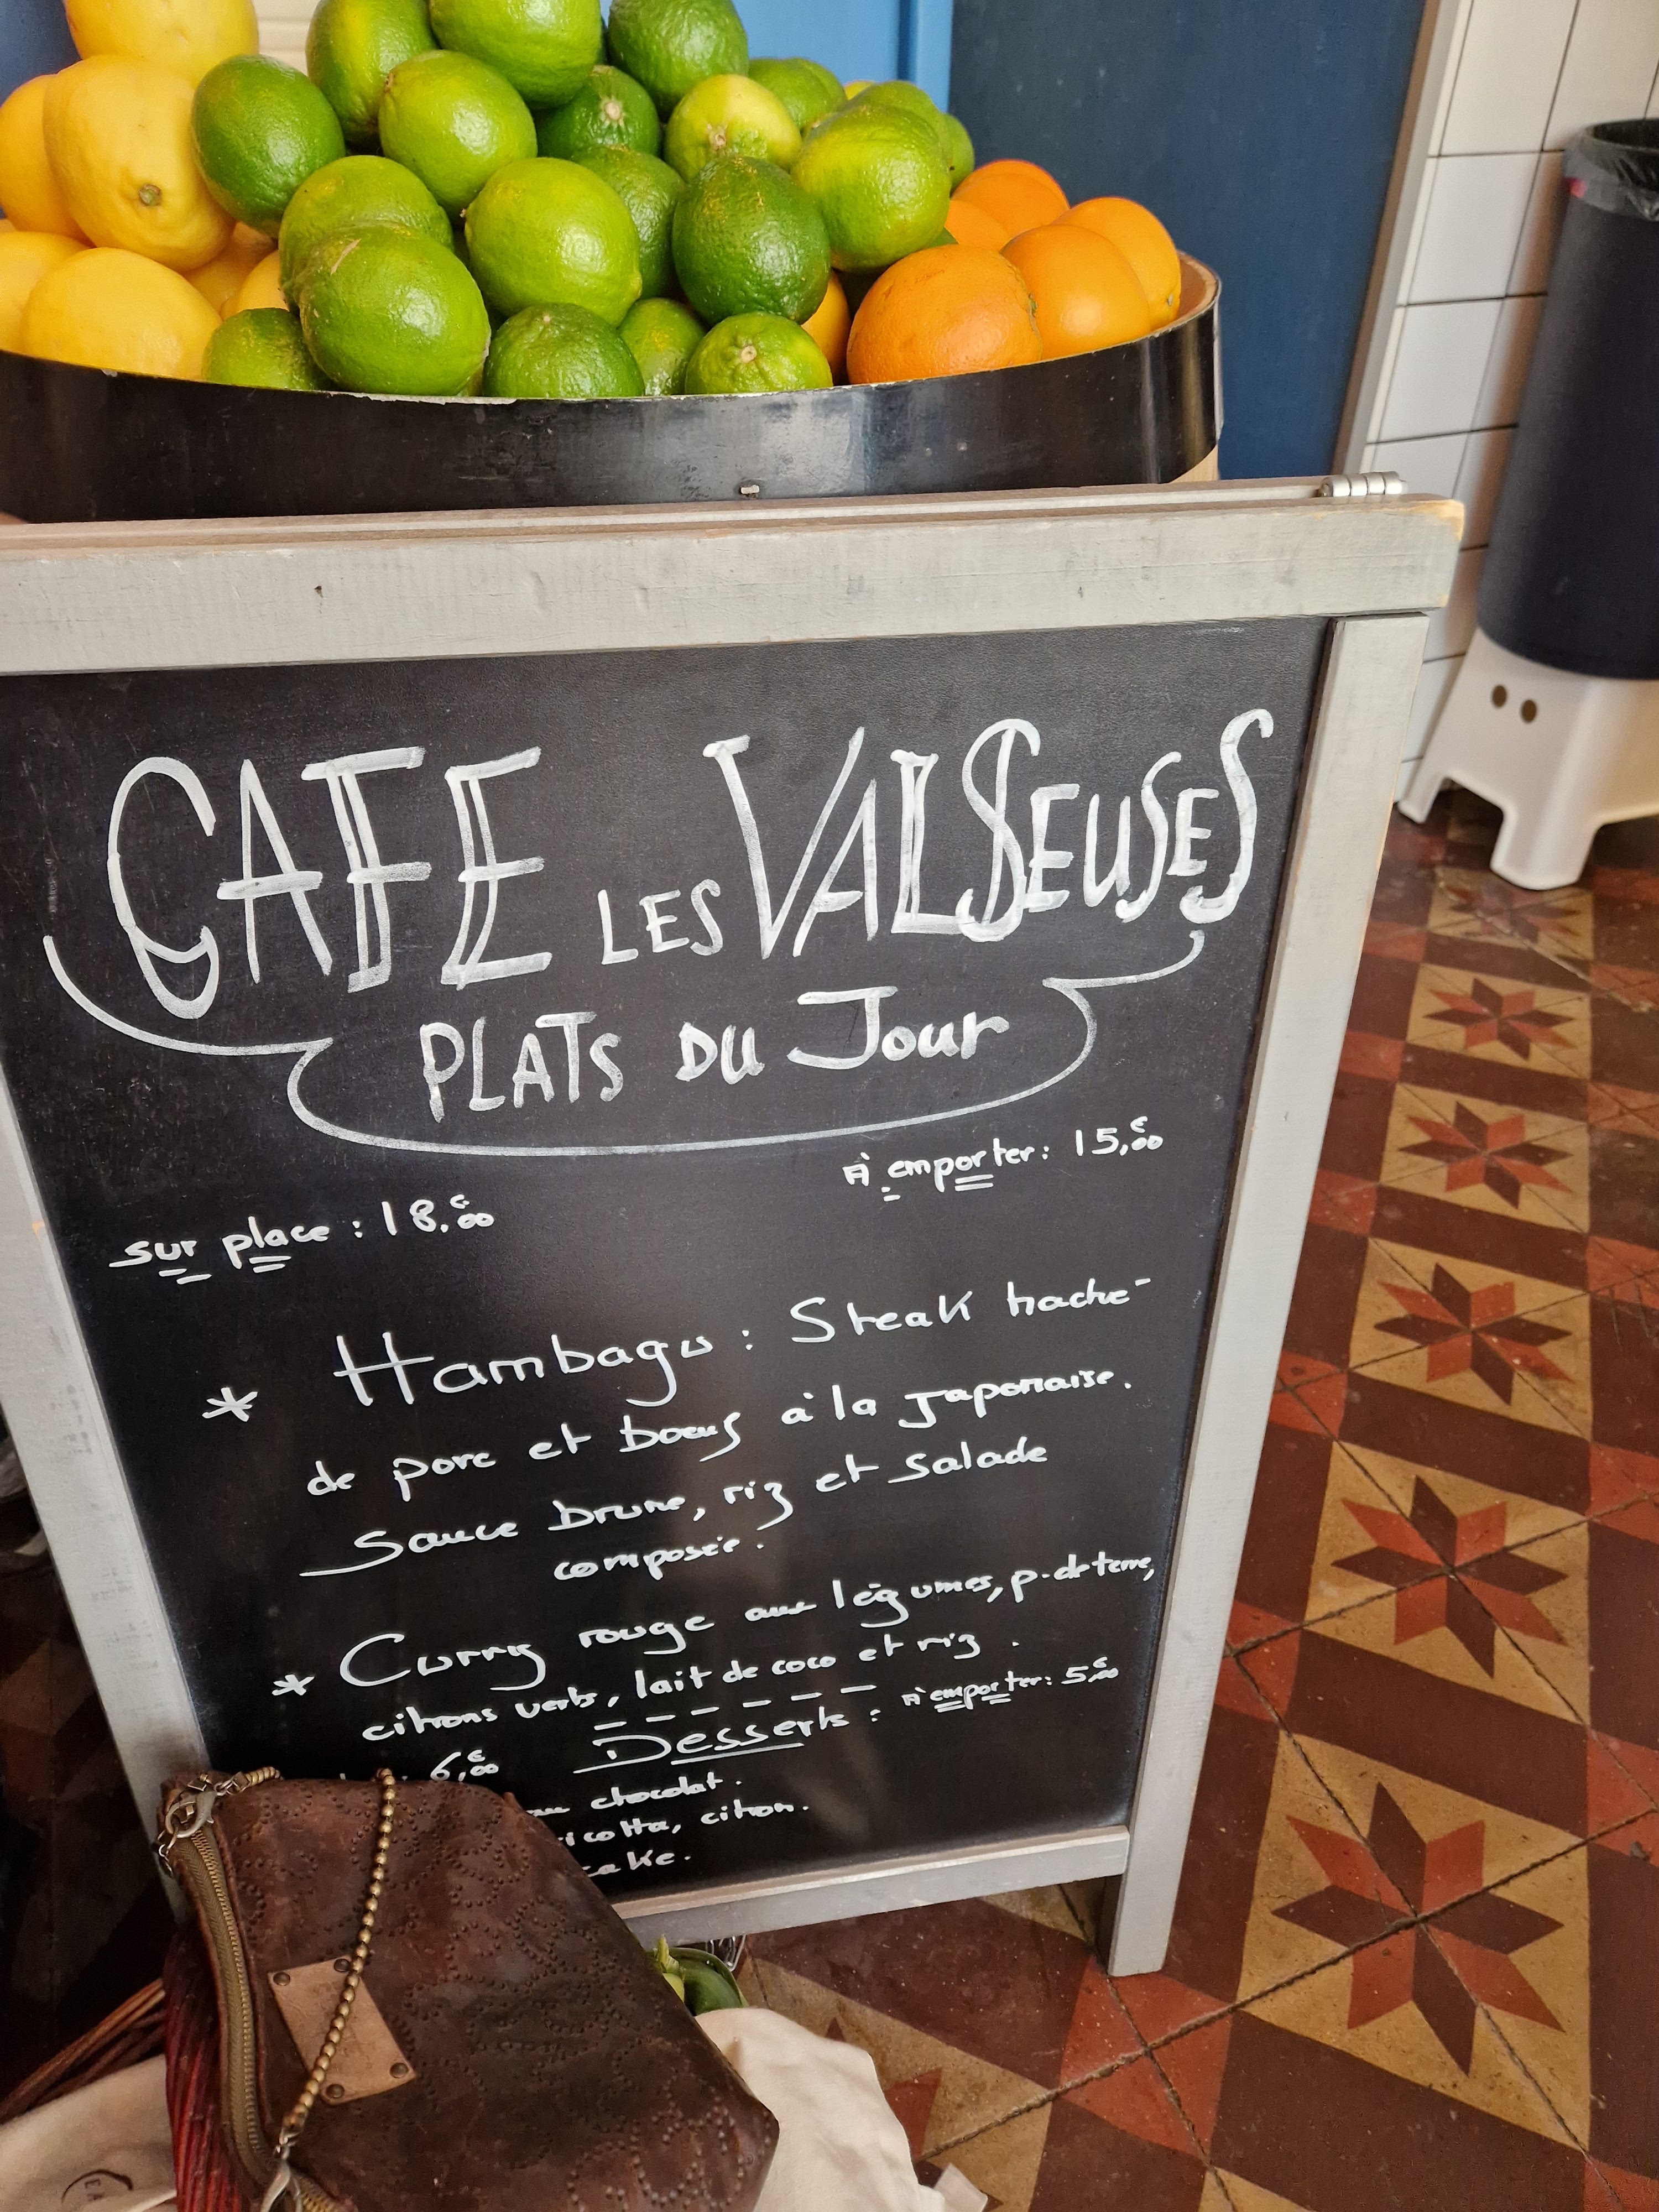 CAFE LES VALSEUSES
PLATS DU Jour
À emporter: 15,€00
sur place : 18.€00
* Hambagu : Steak haché
de porc et boeuf à la Japonaise.
Sauce brune, riz et salade
composée.
* Curry rouge aux légumes, p. de terre,
citrons verts, lait de coco et riz.
Desserts : À emporter: 5,€00
6,€00
chocolat.
citron.
cake.